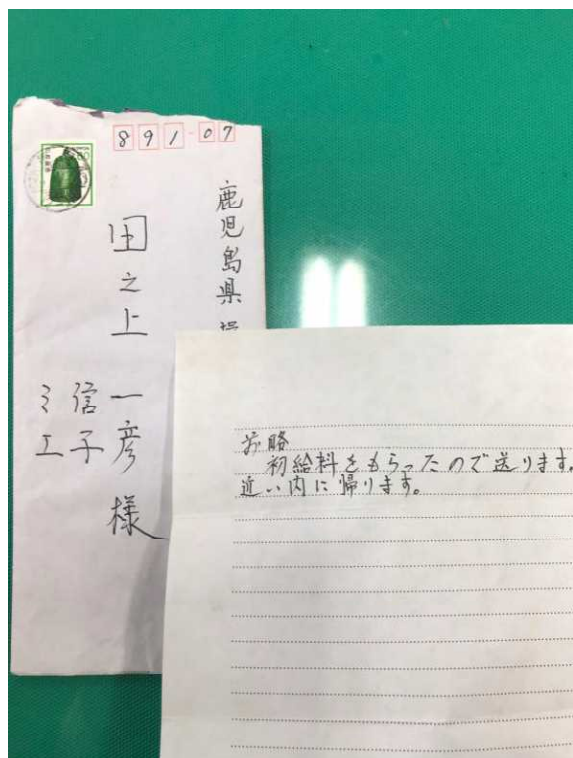 891-07
鹿児島県
田之上 一彦 様
信子
ミエ
前略
初給料をもらったので送ります。
近い内に帰ります。